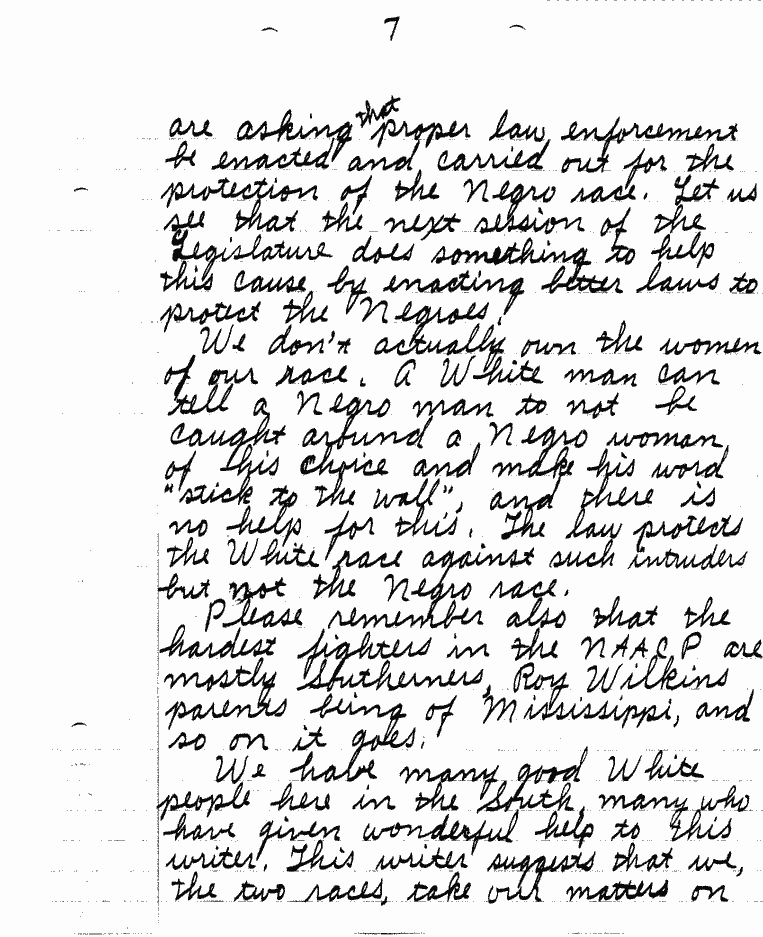 7
are asking that proper law enforcement
be enacted and carried out for the
protection of the Negro race. Let us
see that the next session of the
Legislature does something to help
this cause by enacting better laws to
protect the Negroes!
We don't actually own the women
of our race. A White man can
tell a Negro man to not be
caught around a Negro woman
of his choice and make his word
"stick to the wall", and there is
no help for this. The law protects
the White race against such intruders
but not the Negro race.
Please remember also that the
hardest fighters in the NAACP are
mostly Southerners, Roy Wilkins
parents being of Mississippi, and
so on it goes.
We have many good White
people here in the South, many who
have given wonderful help to this
writer. This writer suggests that we,
the two races, take our matters on